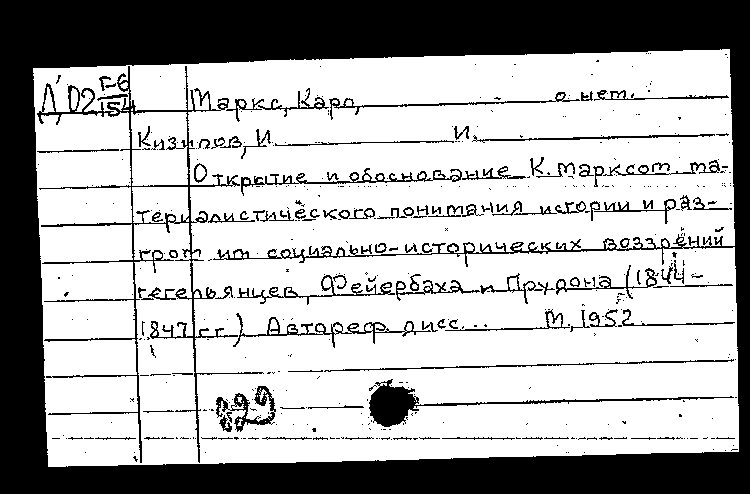 Д'02 Г-6/154
Маркс, Карл, о нем.
Кизилов, И. И.
Открытие и обоснование К. Марксом ма-
териалистического понимания истории и раз-
гром им социально-исторических воззрений
гегельянцев, Фейербаха и Прудона (1844-
1847 гг.) Автореф. дисс... М., 1952.